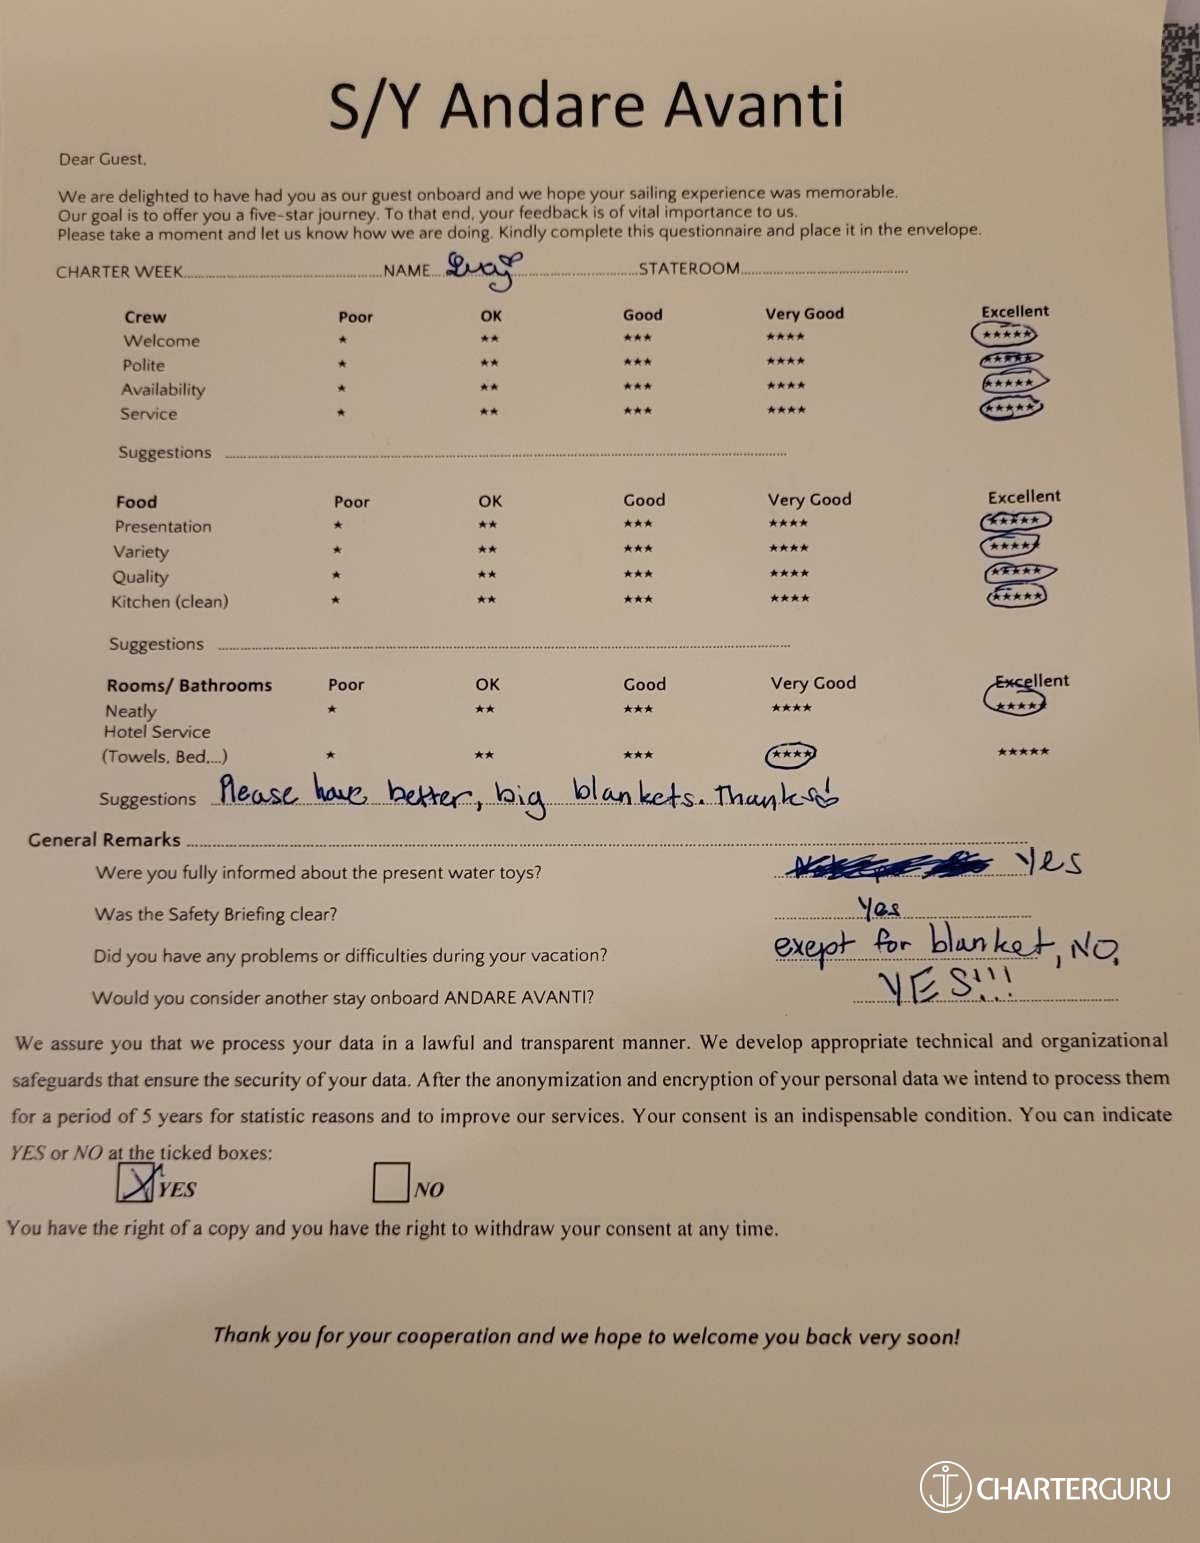 S/Y Andare Avanti
Dear Guest,
We are delighted to have had you as our guest onboard and we hope your sailing experience was memorable.
Our goal is to offer you a five-star journey. To that end, your feedback is of vital importance to us.
Please take a moment and let us know how we are doing. Kindly complete this questionnaire and place it in the envelope.
CHARTER WEEK NAME STATEROOM
Crew Poor OK Good Very Good Excellent
Welcome ★ ★★ ★★★ ★★★★ ★★★★★
Polite ★ ★★ ★★★ ★★★★ ★★★★★
Availability ★ ★★ ★★★ ★★★★ ★★★★★
Service ★ ★★ ★★★ ★★★★ ★★★★★
Suggestions
Food Poor OK Good Very Good Excellent
Presentation ★ ★★ ★★★ ★★★★ ★★★★★
Variety ★ ★★ ★★★ ★★★★ ★★★★★
Quality ★ ★★ ★★★ ★★★★ ★★★★★
Kitchen (clean) ★ ★★ ★★★ ★★★★ ★★★★★
Suggestions
Rooms/ Bathrooms Poor OK Good Very Good Excellent
Neatly ★ ★★ ★★★ ★★★★ ★★★★★
Hotel Service
(Towels, Bed,...) ★ ★★ ★★★ ★★★★ ★★★★★
Suggestions Please have better, big blankets. Thanks!
General Remarks
Were you fully informed about the present water toys? Yes
Was the Safety Briefing clear? Yes
Did you have any problems or difficulties during your vacation? exept for blanket, NO.
Would you consider another stay onboard ANDARE AVANTI? YES!!!
We assure you that we process your data in a lawful and transparent manner. We develop appropriate technical and organizational
safeguards that ensure the security of your data. After the anonymization and encryption of your personal data we intend to process them
for a period of 5 years for statistic reasons and to improve our services. Your consent is an indispensable condition. You can indicate
YES or NO at the ticked boxes:
YES NO
You have the right of a copy and you have the right to withdraw your consent at any time.
Thank you for your cooperation and we hope to welcome you back very soon!
CHARTERGURU